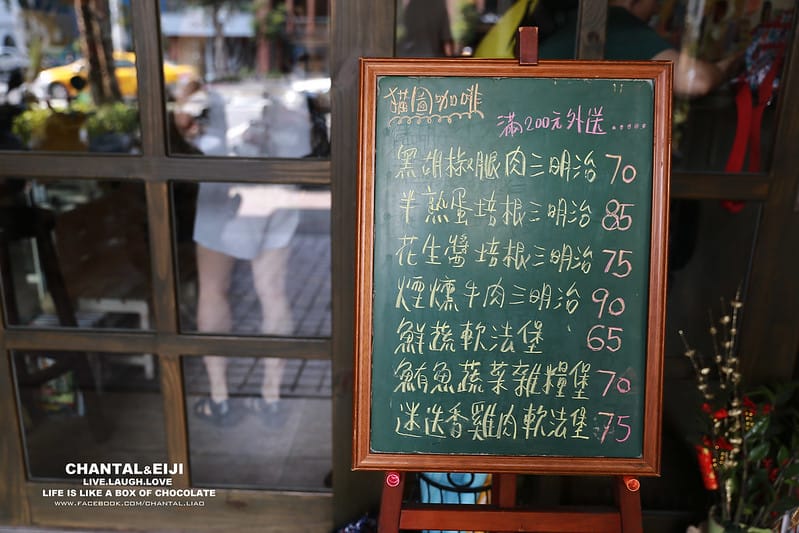 猫圖咖啡
滿200元外送......
黑胡椒腿肉三明治 70
半熟蛋培根三明治 85
花生醬培根三明治 75
煙燻牛肉三明治 90
鮮蔬軟法堡 65
鮪魚蔬菜雜糧堡 70
迷迭香雞肉軟法堡 75
CHANTAL&EIJI
LIVE.LAUGH.LOVE
LIFE IS LIKE A BOX OF CHOCOLATE
WWW.FACEBOOK.COM/CHANTAL.LIAO